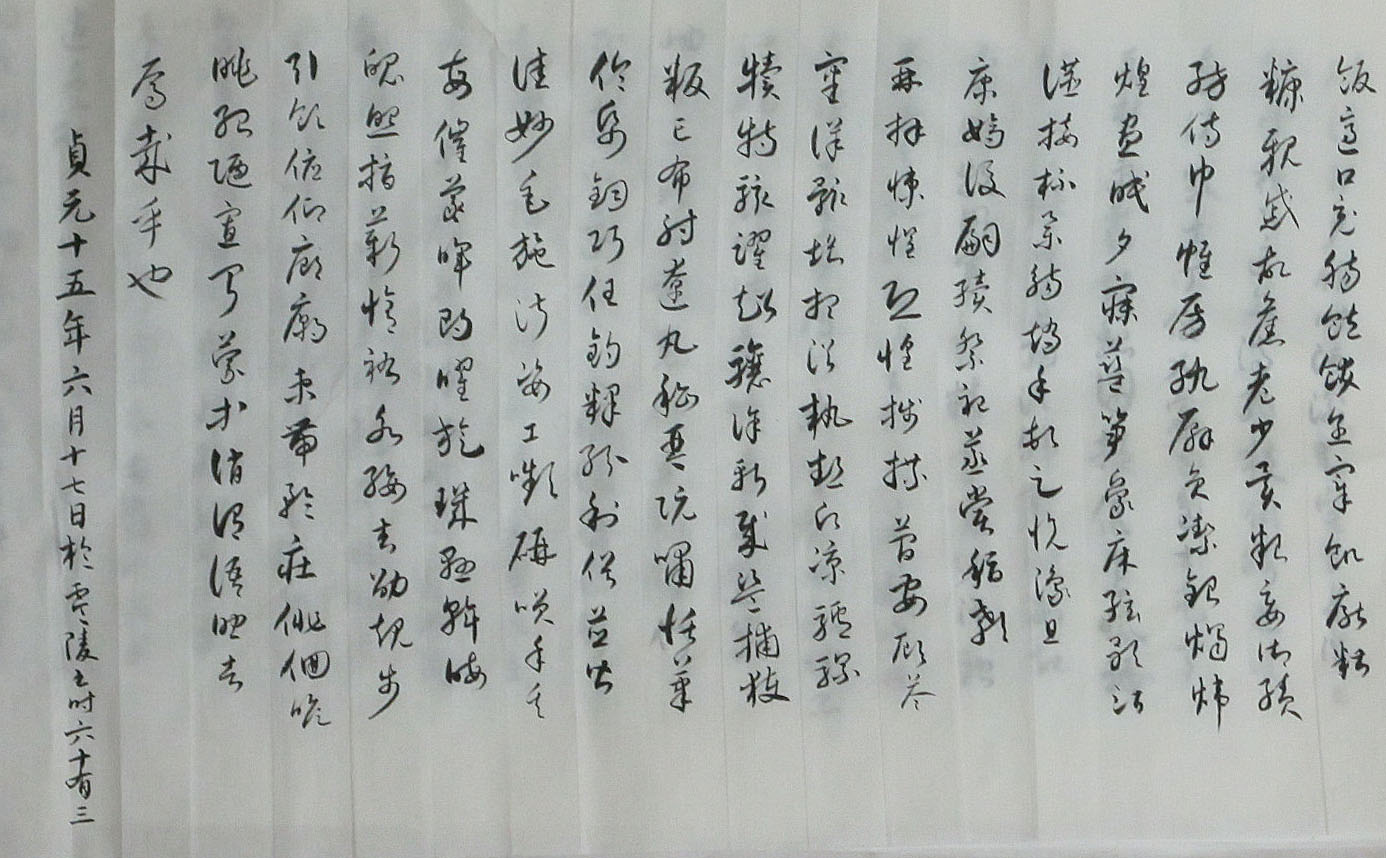 飯適口充腸飽飫烹宰飢厭糟
糠親戚故舊老少異糧妾御績
紡侍巾帷房紈扇員潔銀燭煒
煌晝眠夕寐藍笋象床弦歌酒
讌接杯舉觴矯手頓足悅豫且
康嫡後嗣續祭祀蒸嘗稽顙
再拜悚懼恐惶牋牒簡要顧答
審詳骸垢想浴執熱願涼驢騾
犢特駭躍超驤誅斬賊盜捕獲
叛亡布射遼丸嵇琴阮嘯恬筆
倫紙鈞巧任釣釋紛利俗並皆
佳妙毛施淑姿工嚬研咲年矢
每催羲暉朗曜旋璣懸斡晦
魄環照指薪脩祜永綏吉劭矩步
引領俯仰廊廟束帶矜莊俳佪瞻
眺孤陋寡聞愚蒙等誚謂語助者
焉哉乎也
貞元十五年六月十七日於零陵書時六十有三